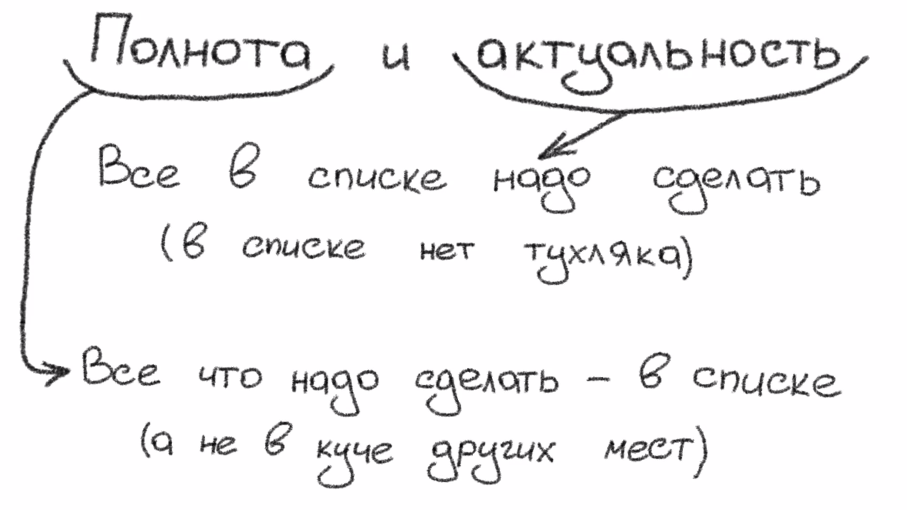 Полнота и актуальность
Все в списке надо сделать
(в списке нет тухляка)
Все что надо сделать - в списке
(а не в куче других мест)